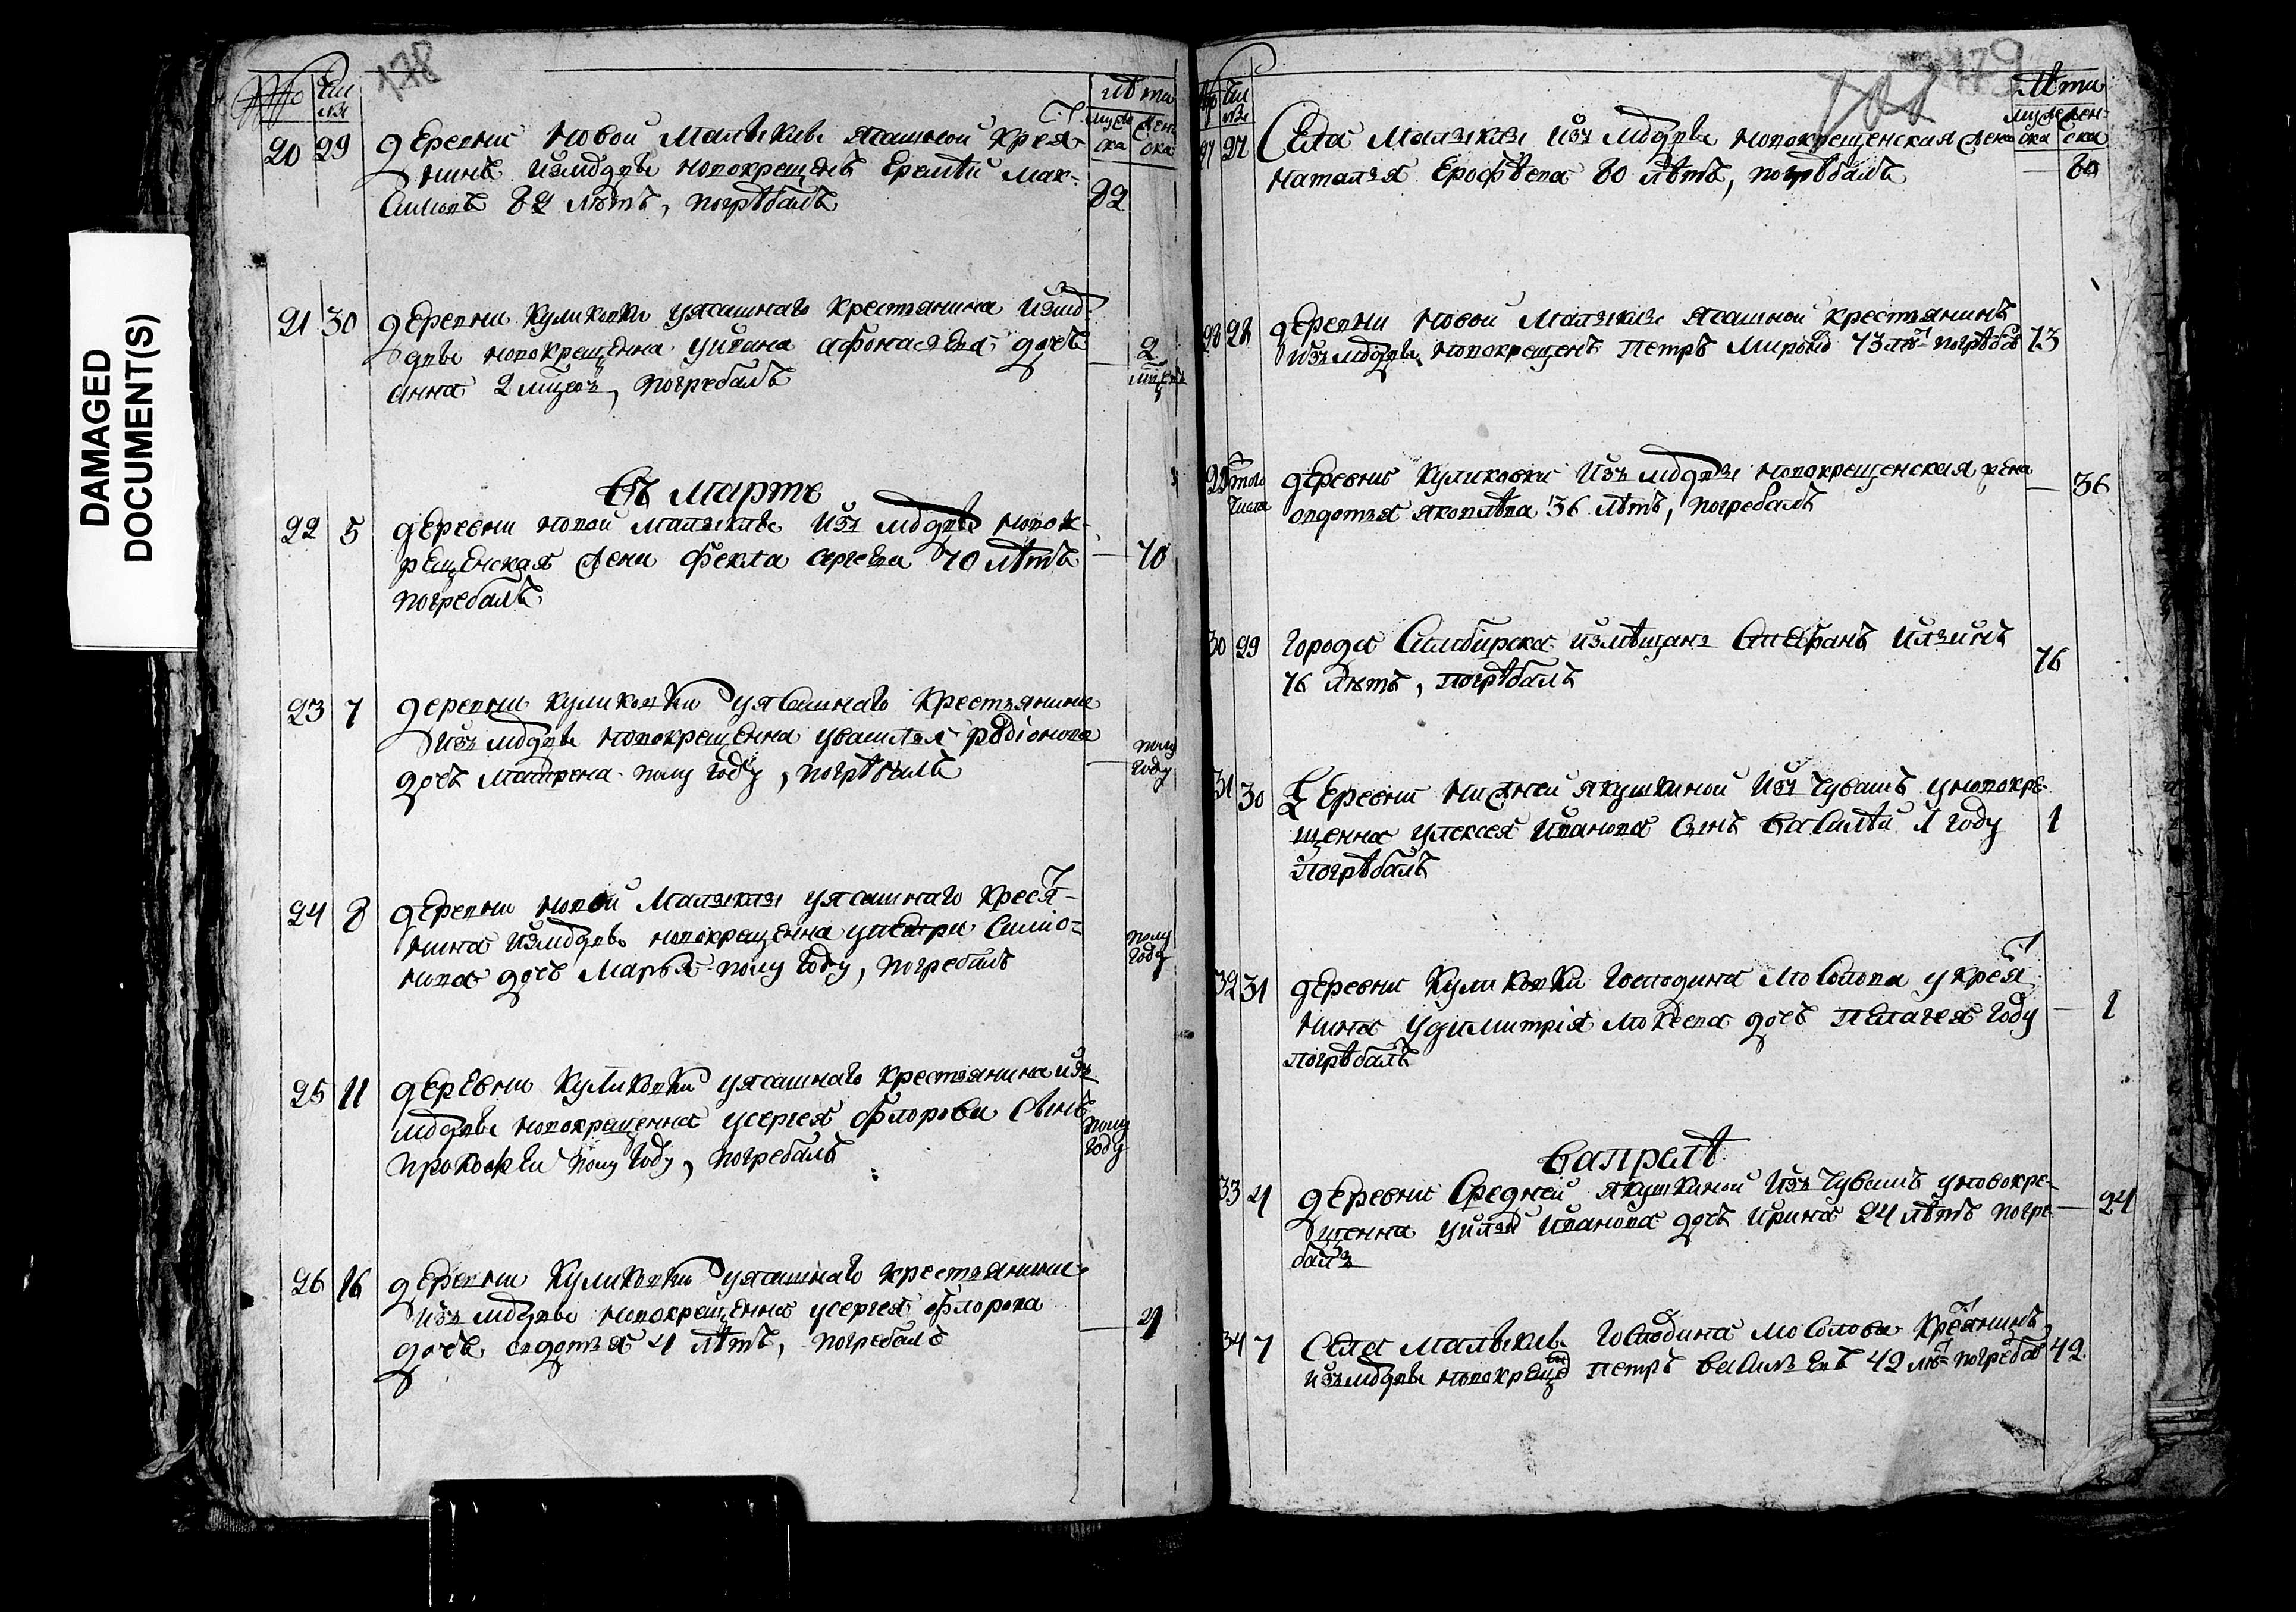 DAMAGED
DOCUMENT(S)
178
№ Чи сла Лѣта
муже ска жен ска
20 29 деревни Новой Малыклы ясашной крестья
нинъ измордвы новокрещенъ Еремѣй Мак-
симовъ 82 лѣтъ, погрѣбалъ 82
21 30 деревни Куликовки уясашнаго крестьянина измор
двы новокрещенна уивана Афонасева дочь
анна 2 мцовъ, погребалъ 2
въ мартѣ
22 5 деревни новой малыклы изъ мордвы новок-
рещенская жена Фекла сергева 70 лѣтъ 70
погребалъ
23 7 деревни куликовки уясашнаго крестьянина
изъ мордвы новокрещенна родионова
дочь матрена полу году, погрѣбалъ полу году
24 8 деревни новой Малыклы уясашнаго крестья-
нина измордвы новокрещенна упетра Симио-
нова дочь Марья полу году, погребалъ полу году
25 11 деревни Куликовки уясашнаго крестьянина изъ
мордвы новокрещенна усергея Флорова сынъ
прокофеи полу году, погребалъ полу году
26 16 деревни Куликовки уясашнаго крестьянина
изъ мордвы новокрещенна усергея флорова
дочь 4 лѣтъ, погребалъ 4
179
Чи сла Лѣта
муже ска жен ска
27 27 Села Малыклы изъ мордвы новокрещенская жена
наталья Ерофѣева 80 лѣтъ, погрѣбалъ 80
28 28 деревни Новой Малыклы ясашной крестьянинъ
изъ мордвы новокрещенъ Петръ Миронов 73 лѣт погрѣбал 73
29 того числа деревни Куликовки изъ мордвы новокрещенская жена
овдотья яковлѣва 36 лѣтъ, погребалъ 36
30 29 города Симбирска измѣщанъ Степанъ Ильинъ
76 лѣтъ, погрѣбалъ 76
31 30 деревни Нижней якушкиной изъ чувашъ уновокре-
щенна улексея Иванова сынъ василѣи 1 году 1
погрѣбалъ
32 31 деревни Куликовки господина Мосолова укрестья
нина удимитрія Мокеева дочь пелагея году 1
погрѣбалъ
вапрелѣ
33 4 деревни Средней якушкиной изъ чувашъ уновокре-
щенна уильи иванова дочь ирина 24 лѣтъ погре 24
балъ
34 7 Села малыклы господина мосолова крестьянинъ
изъмордвы новокрещен петръ василь евъ 42 лѣт погребал 42